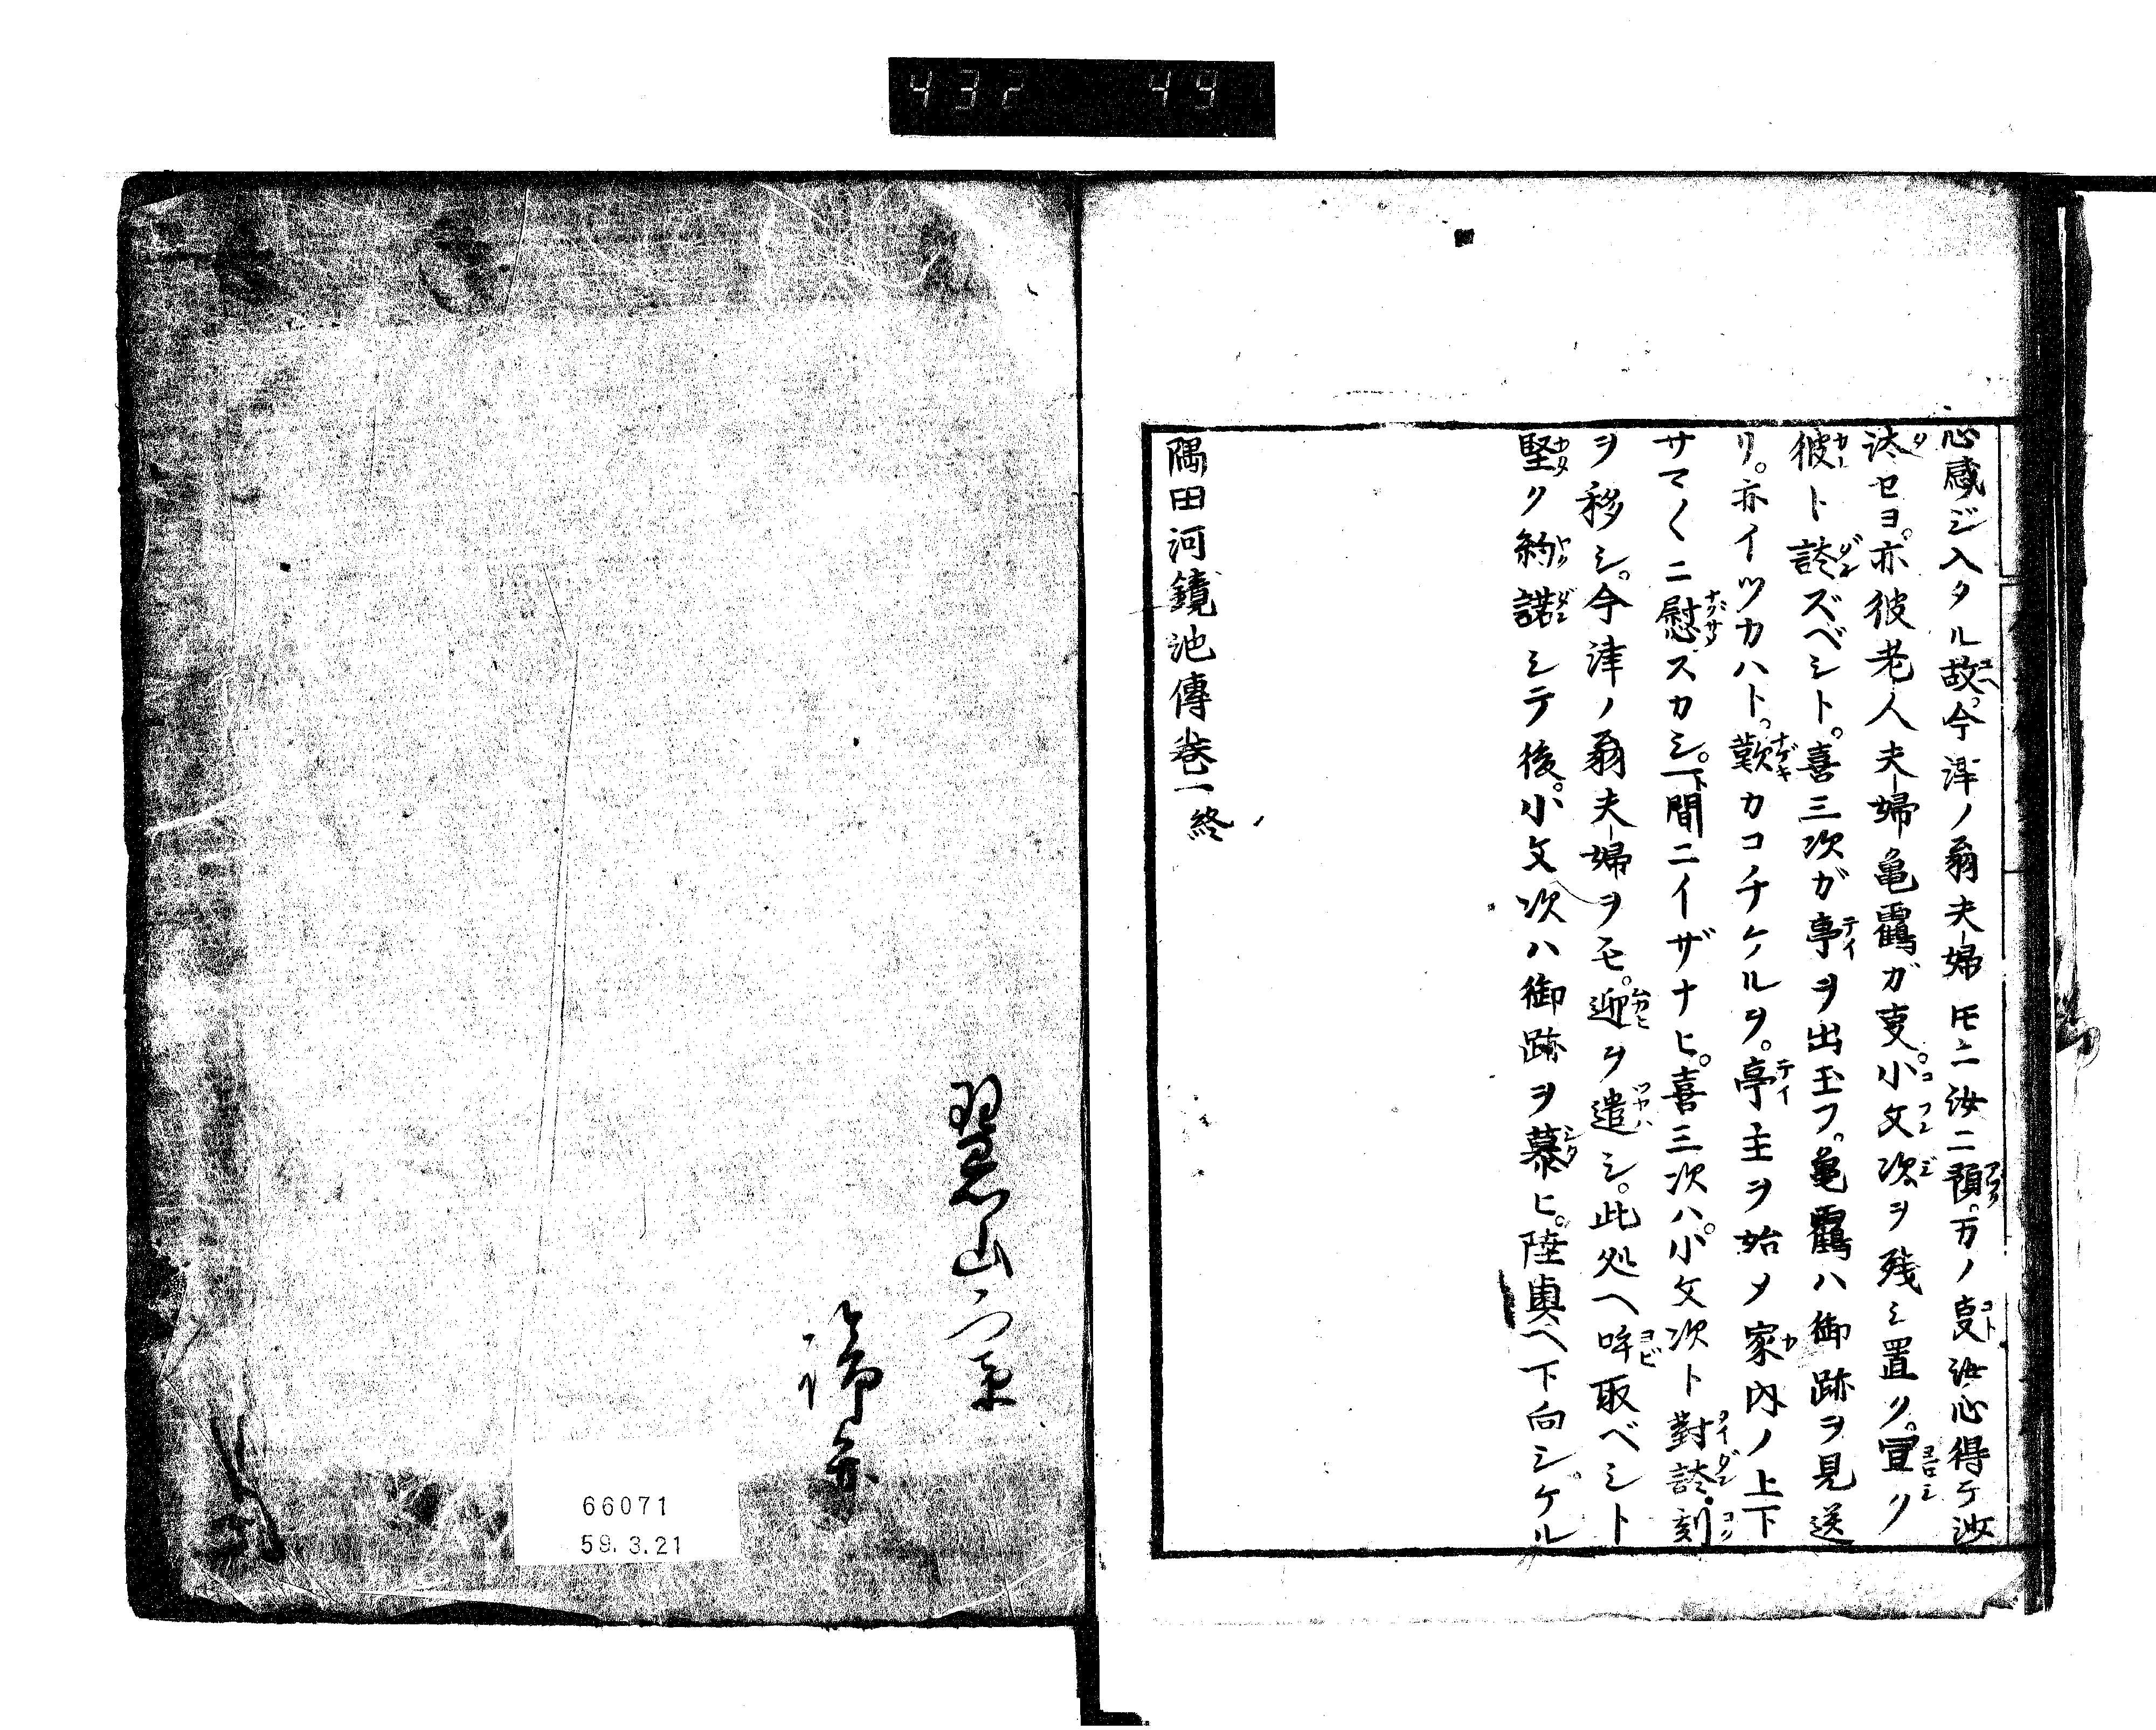 432 49
心感ジ入タル故。今津ノ翁夫婦𪜈ニ汝ニ預。万ノ叓汝心得テ沙
汰セヨ。亦彼老人夫婦亀鶴ガ叓。小文次ヲ残シ置リ。宜ク
彼ト談ズベシト。喜三次ガ亭ヲ出玉フ。亀鶴ハ御跡ヲ見送
リ。亦イツカハト。歎カコチケルヲ。亭主ヲ始メ家内ノ上下
サマ〱ニ慰スカシ。下間ニイザナヒ。喜三次ハ。小文次ト對談。刻
ヲ移シ。今津ノ翁夫婦ヲモ。迎ヲ遣シ。此処ヘ呼取ベシト
堅ク約諾シテ後。小文次ハ御跡ヲ慕ヒ。陸奥ヘ下向シケル
隅田河鏡池傳巻一終
66071
59.3.21